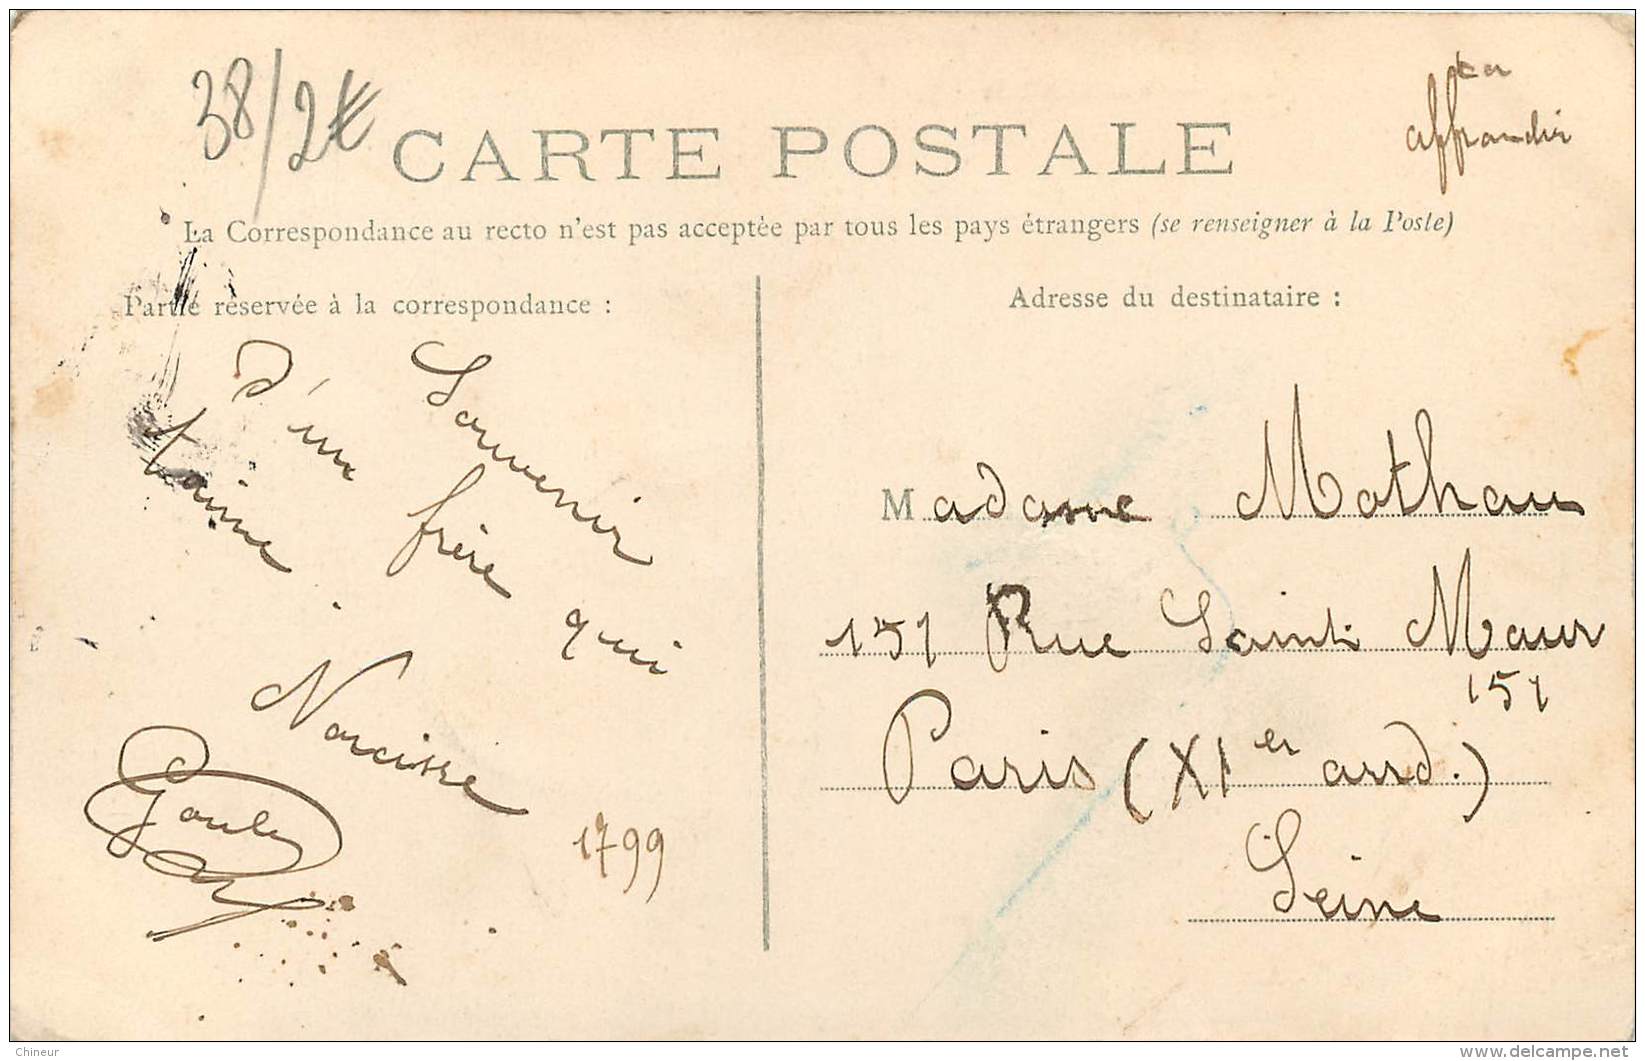 38/2€
CARTE POSTALE
affrandir
La Correspondance au recto n'est pas acceptée par tous les pays étrangers (se renseigner à la Poste)
Partie réservée à la correspondance :
Souvenir
d'un frère qui
t'aime.
Narcisse
1799
Adresse du destinataire :
Madame Mathau
151 Rue Saint Maur
151
Paris (XIer arrd.)
Seine
Chineur
delcampe.net